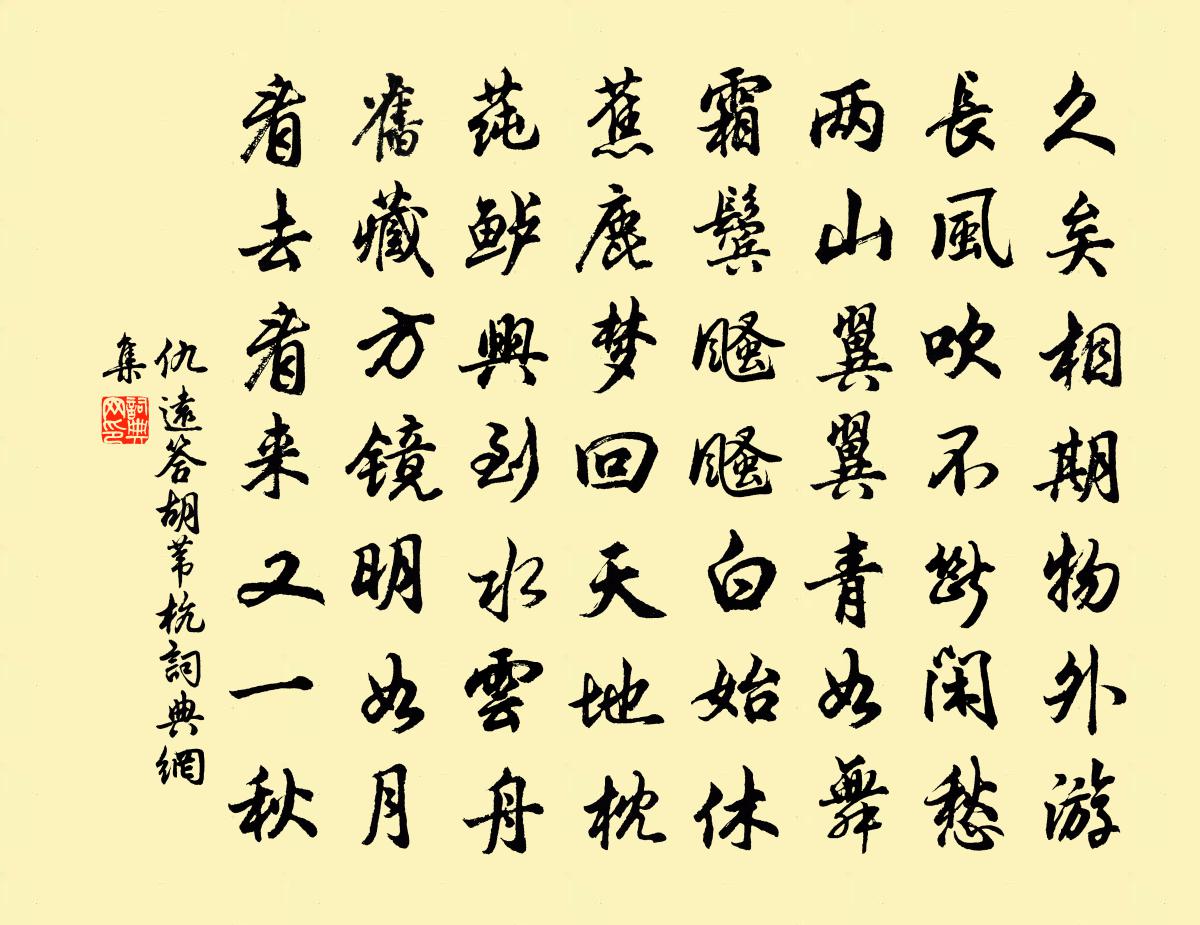 久矣相期物外游
長風吹不斷闲愁
两山翼翼青如舞
霜鬓飕飕白始休
蕉鹿梦回天地枕
莼鲈興到水雲舟
舊藏方镜明如月
看去看来又一秋
仇遠答胡苇杭詞典網
集
詞典网印